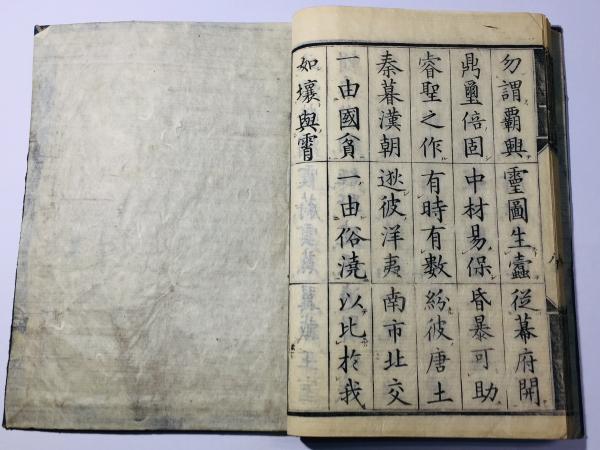 勿謂覇興靈圖生蠹從幕府開
鼎璽倍固中材易保昏暴可助
睿聖之作有時有數紛彼唐土
秦暮漢朝逖彼洋夷南市北交
一由國貧一由俗澆以比扵我
如壤與霄